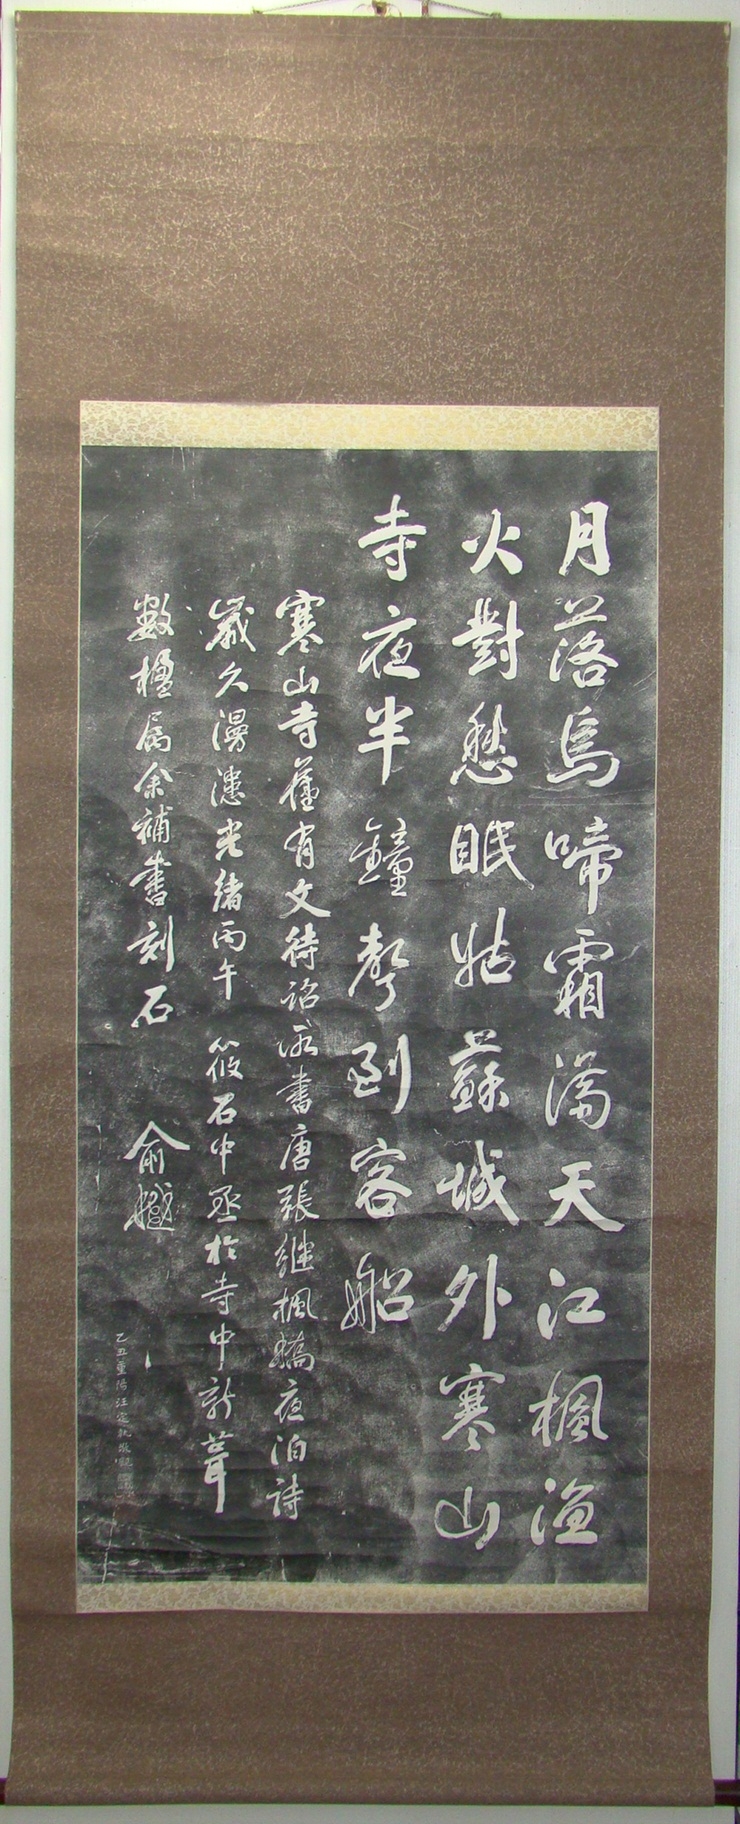 月落烏啼霜滿天江楓漁
火對愁眠姑蘇城外寒山
寺夜半鐘聲到客船
寒山寺舊有文待詔所書唐張繼楓橋夜泊詩
歲久漫漶光緒丙午筱石中丞於寺中新葺
數楹屬余補書刻石
俞樾
乙丑重陽汪